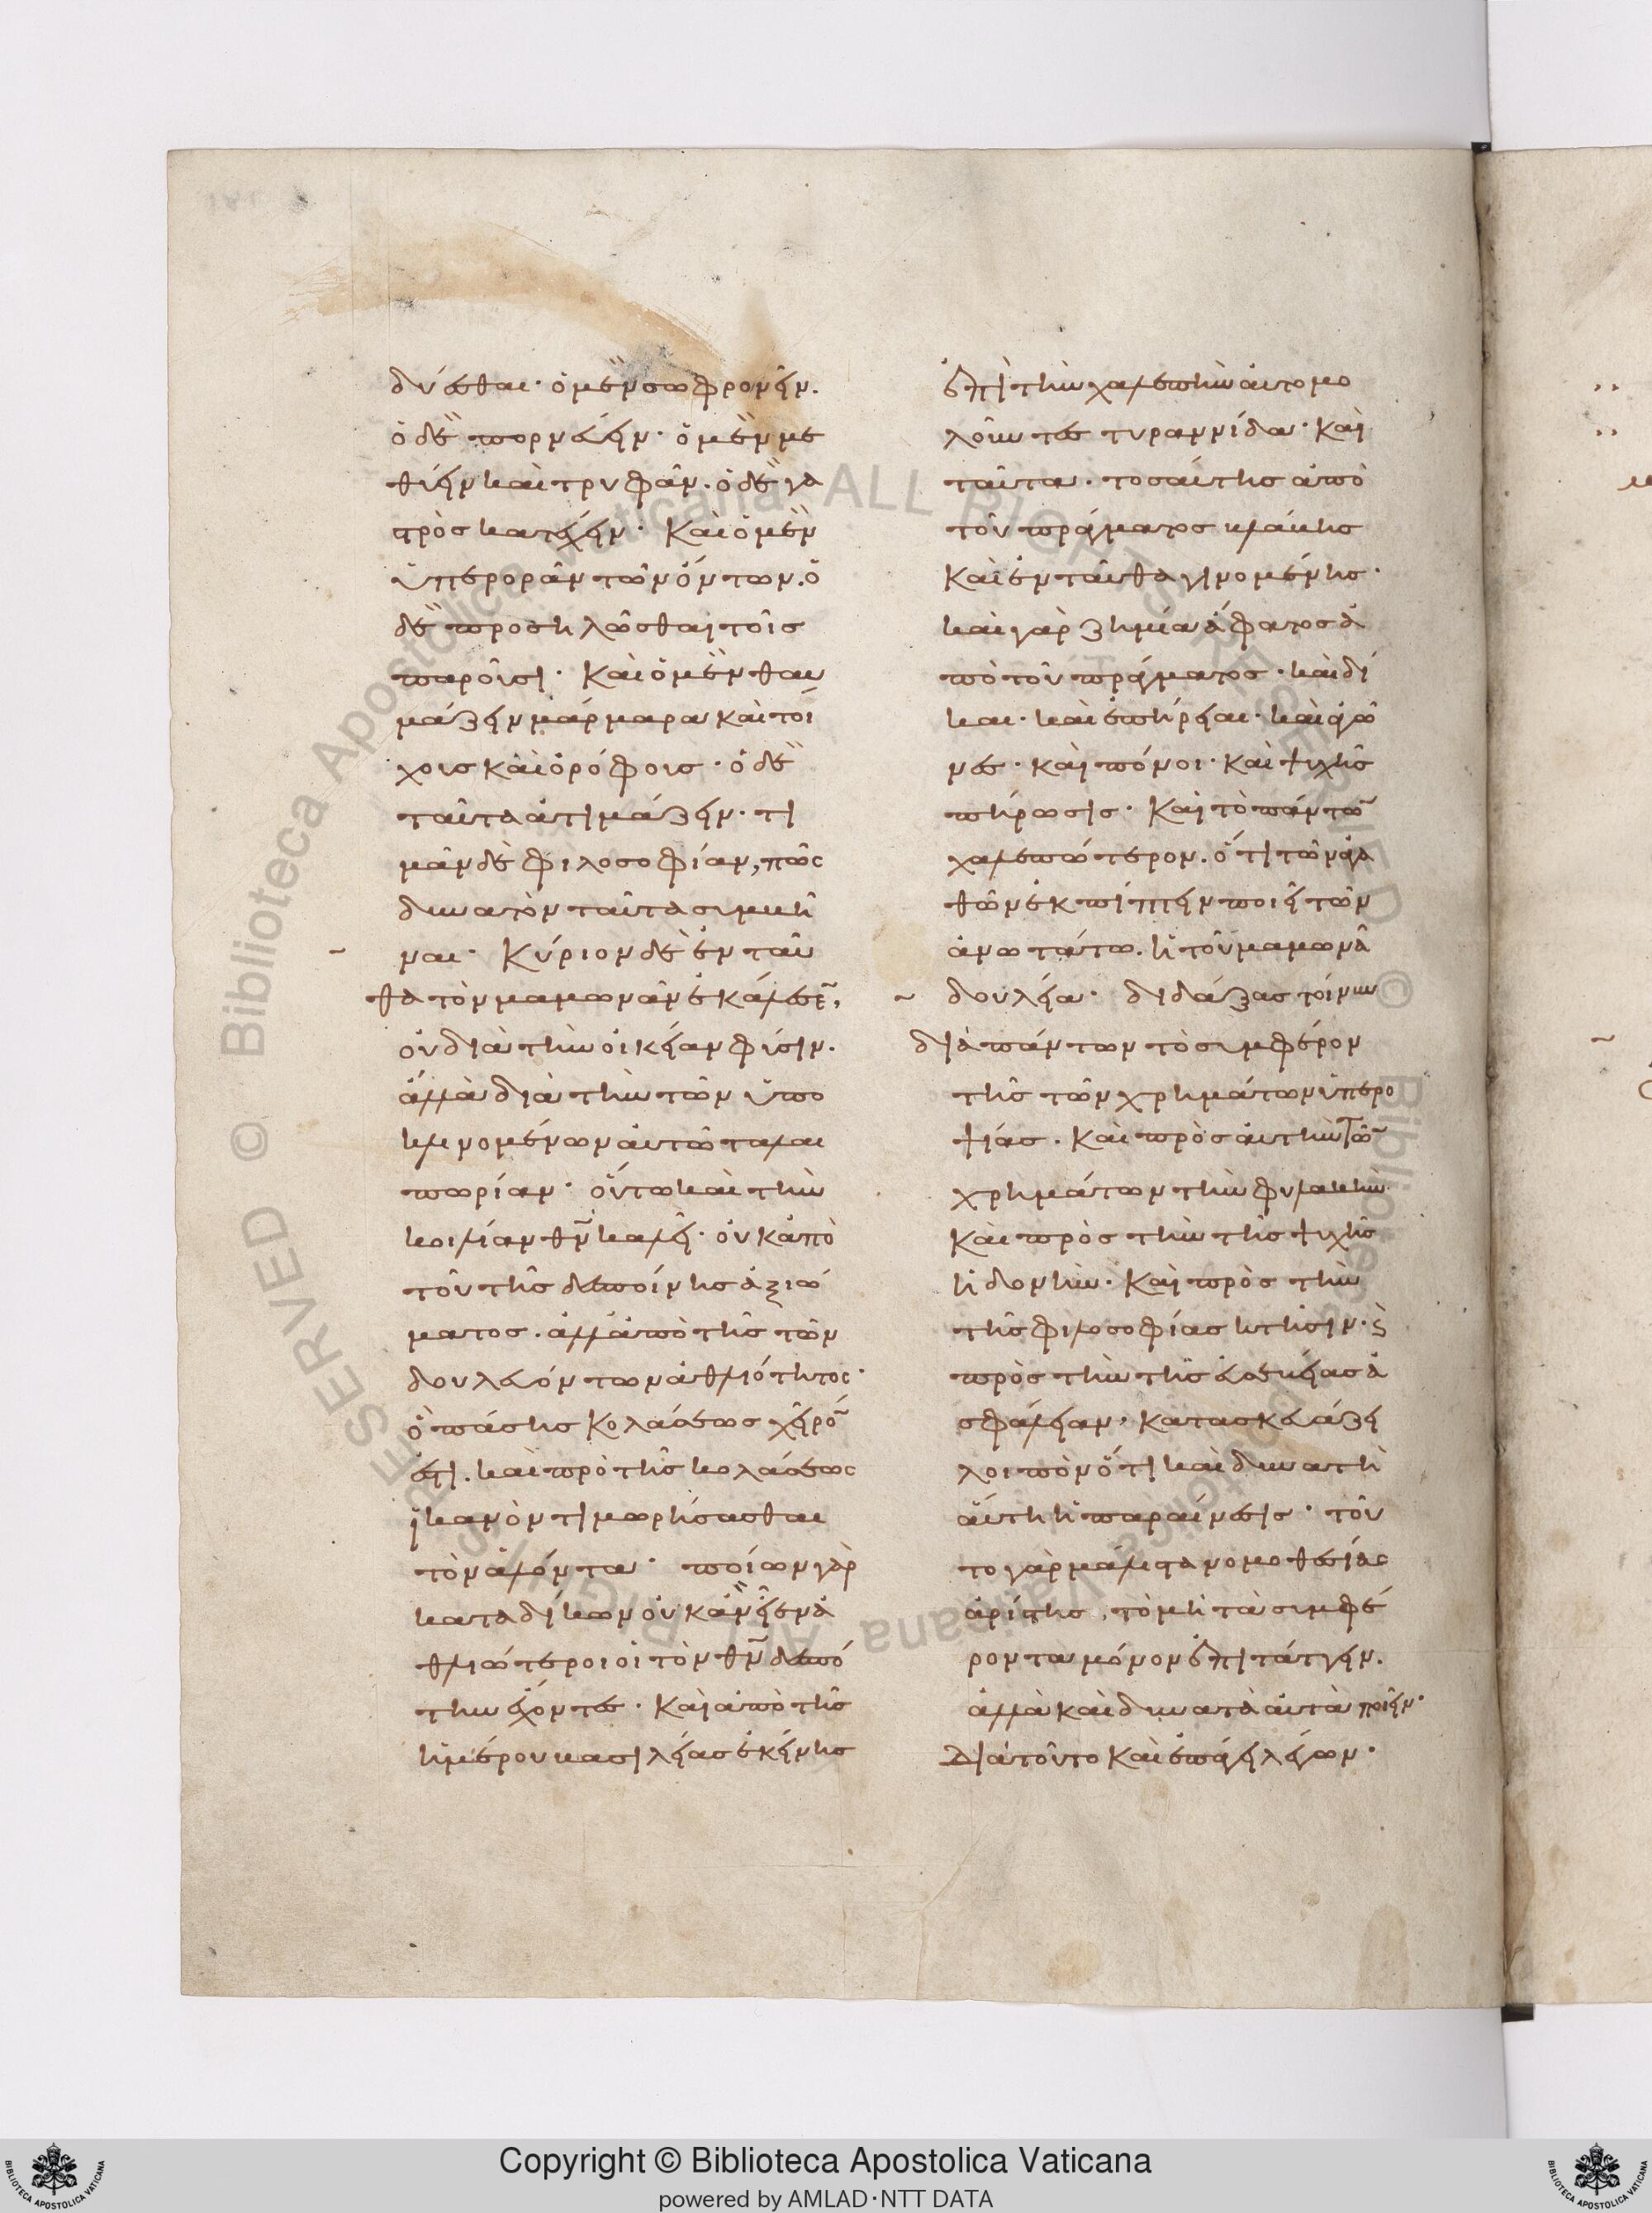 δύεσθαι· ὁ μὲν σωφρονεῖν.
ὁ δὲ πορνεύειν· ὁ μὲν με
θύειν καὶ τρυφᾶν. ὁ δὲ γα
στρὸς κατέχειν· Καὶ ὁ μὲν
ὑπερορᾶν τῶν ὄντων. ὁ
δὲ προσηλῶσθαι τοῖς
παροῦσι· Καὶ ὁ μὲν θαυ
μάζειν μάρμαρα καὶ τοί
χους καὶ ὀρόφους· ὁ δὲ
ταῦτα ἀτιμάζειν· τι
μᾶν δὲ φιλοσοφίαν, πῶς
δυνατὸν ταῦτα συμβῆ
ναι· Κύριον δὲ ἐνταῦ
θα τὸν μαμωνᾶν ἐκάλεσε̃,
οὐ διὰ τὴν οἰκείαν φύσιν.
ἀλλὰ διὰ τὴν τῶν ὑπο
κλινομένων αὐτῶ ταλαι
πωρίαν· οὕτω καὶ τὴν
κοιλίαν θν̃ καλεῖ· οὐκ ἀπὸ
τοῦ τῆς δεσποίνης ἀξιώ
ματος. ἀλλ' ἀπὸ τῆς τῶν
δουλευόντων ἀθλιότητος·
ὃ πάσης κολάσεως χεῖρο̃
ἐστι. καὶ πρὸ τῆς κολάσεως
ἱκανὸν τιμωρήσασθαι
τὸν ἁλόντα· ποίων γὰρ
καταδίκων οὐκ ἂν εἶεν ἀ
θλιώτεροι οἱ τὸν θν̃ δεσπό
την ἔχοντες· Καὶ ἀπὸ τῆς
ἡμέρου βασιλείας ἐκείνης
ἐπὶ τὴν χαλεπὴν αὐτομο
λοῦντες τυραννίδα· Καὶ
ταῦτα· τοσαύτης ἀπὸ
τοῦ πράγματος βλάβης
Καὶ ἐνταῦθα γινομένης·
καὶ γὰρ ζημία ἄφατος ἀ
πὸ τοῦ πράγματος· καὶ δί
και· καὶ ἐπήρειαι· καὶ ἀγῶ
νες· καὶ πόνοι· καὶ ψυχῆς
πήρωσις· Καὶ τὸ πάντω̃
χαλεπώτερον. ὅτι τῶν ἀγα
θῶν ἐκπίπτειν ποιεῖ τῶν
ἀνωτάτω. ἡ τοῦ μαμωνᾶ
δουλεία· διδάξας τοίνυν
διὰ πάντων τὸ συμφέρον
τῆς τῶν χρημάτων ὑπερο
ψίας. Καὶ πρὸς αὐτὴν τῶ̃
χρημάτων τὴν φυλακὴν
Καὶ πρὸς τὴν τῆς ψυχῆς
ἡδονὴν· Καὶ πρὸς τὴν
τῆς φιλοσοφίας κτῆσιν· ϛ̀
πρὸς τὴν τῆς εὐσεβείας ἀ
σφάλειαν, κατασκευάζει
λοιπὸν ὅτι καὶ δυνατὴ
αὕτη ἡ παραίνεσις· τοῦ
το γὰρ μάλιστα νομοθεσίας
ἀρίστης, τὸ μὴ τὰ συμφέ
ροντα μόνον ἐπιτάττειν.
ἀλλὰ καὶ δυνατὰ αὐτὰ ποιεῖν·
Διὰ τοῦτο Καὶ ἐπάγει λέγων·